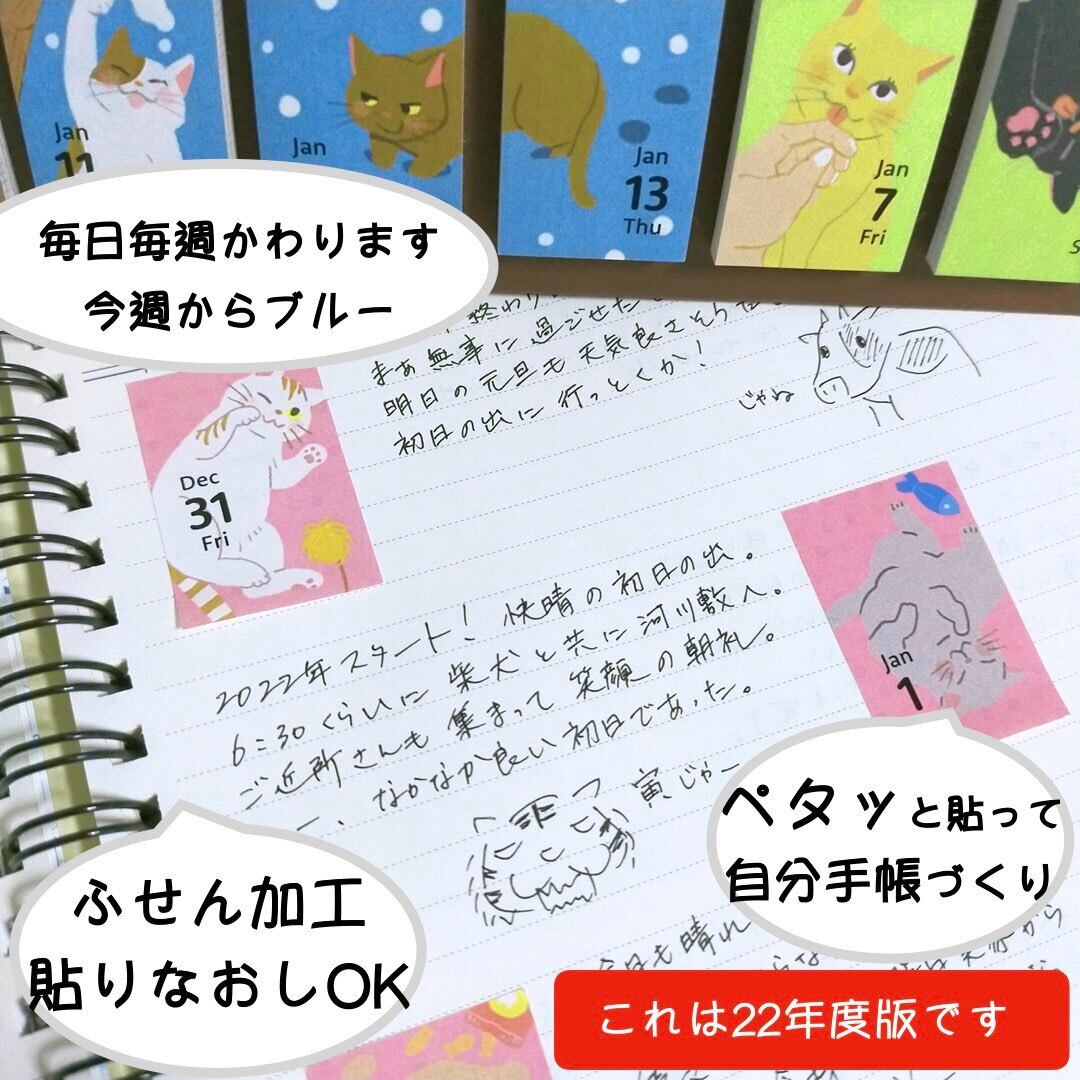 Jan
11
Jan
Jan
13
Thu
Jan
7
Fri
毎日毎週かわります
今週からブルー
終わり
まあ無事に過ごせた
明日の元旦も天気良さそうだ
初日の出に行っとくか!
じゃね
Dec
31
Fri
2022年スタート! 快晴の初日の出。
6:30くらいに柴犬と共に河川敷へ。
ご近所さんも集まって笑顔の朝礼。
なかなか良い初日であった。
寅じゃー
Jan
1
ふせん加工
貼りなおしOK
ペタッと貼って
自分手帳づくり
今日も晴れ
これは22年度版です